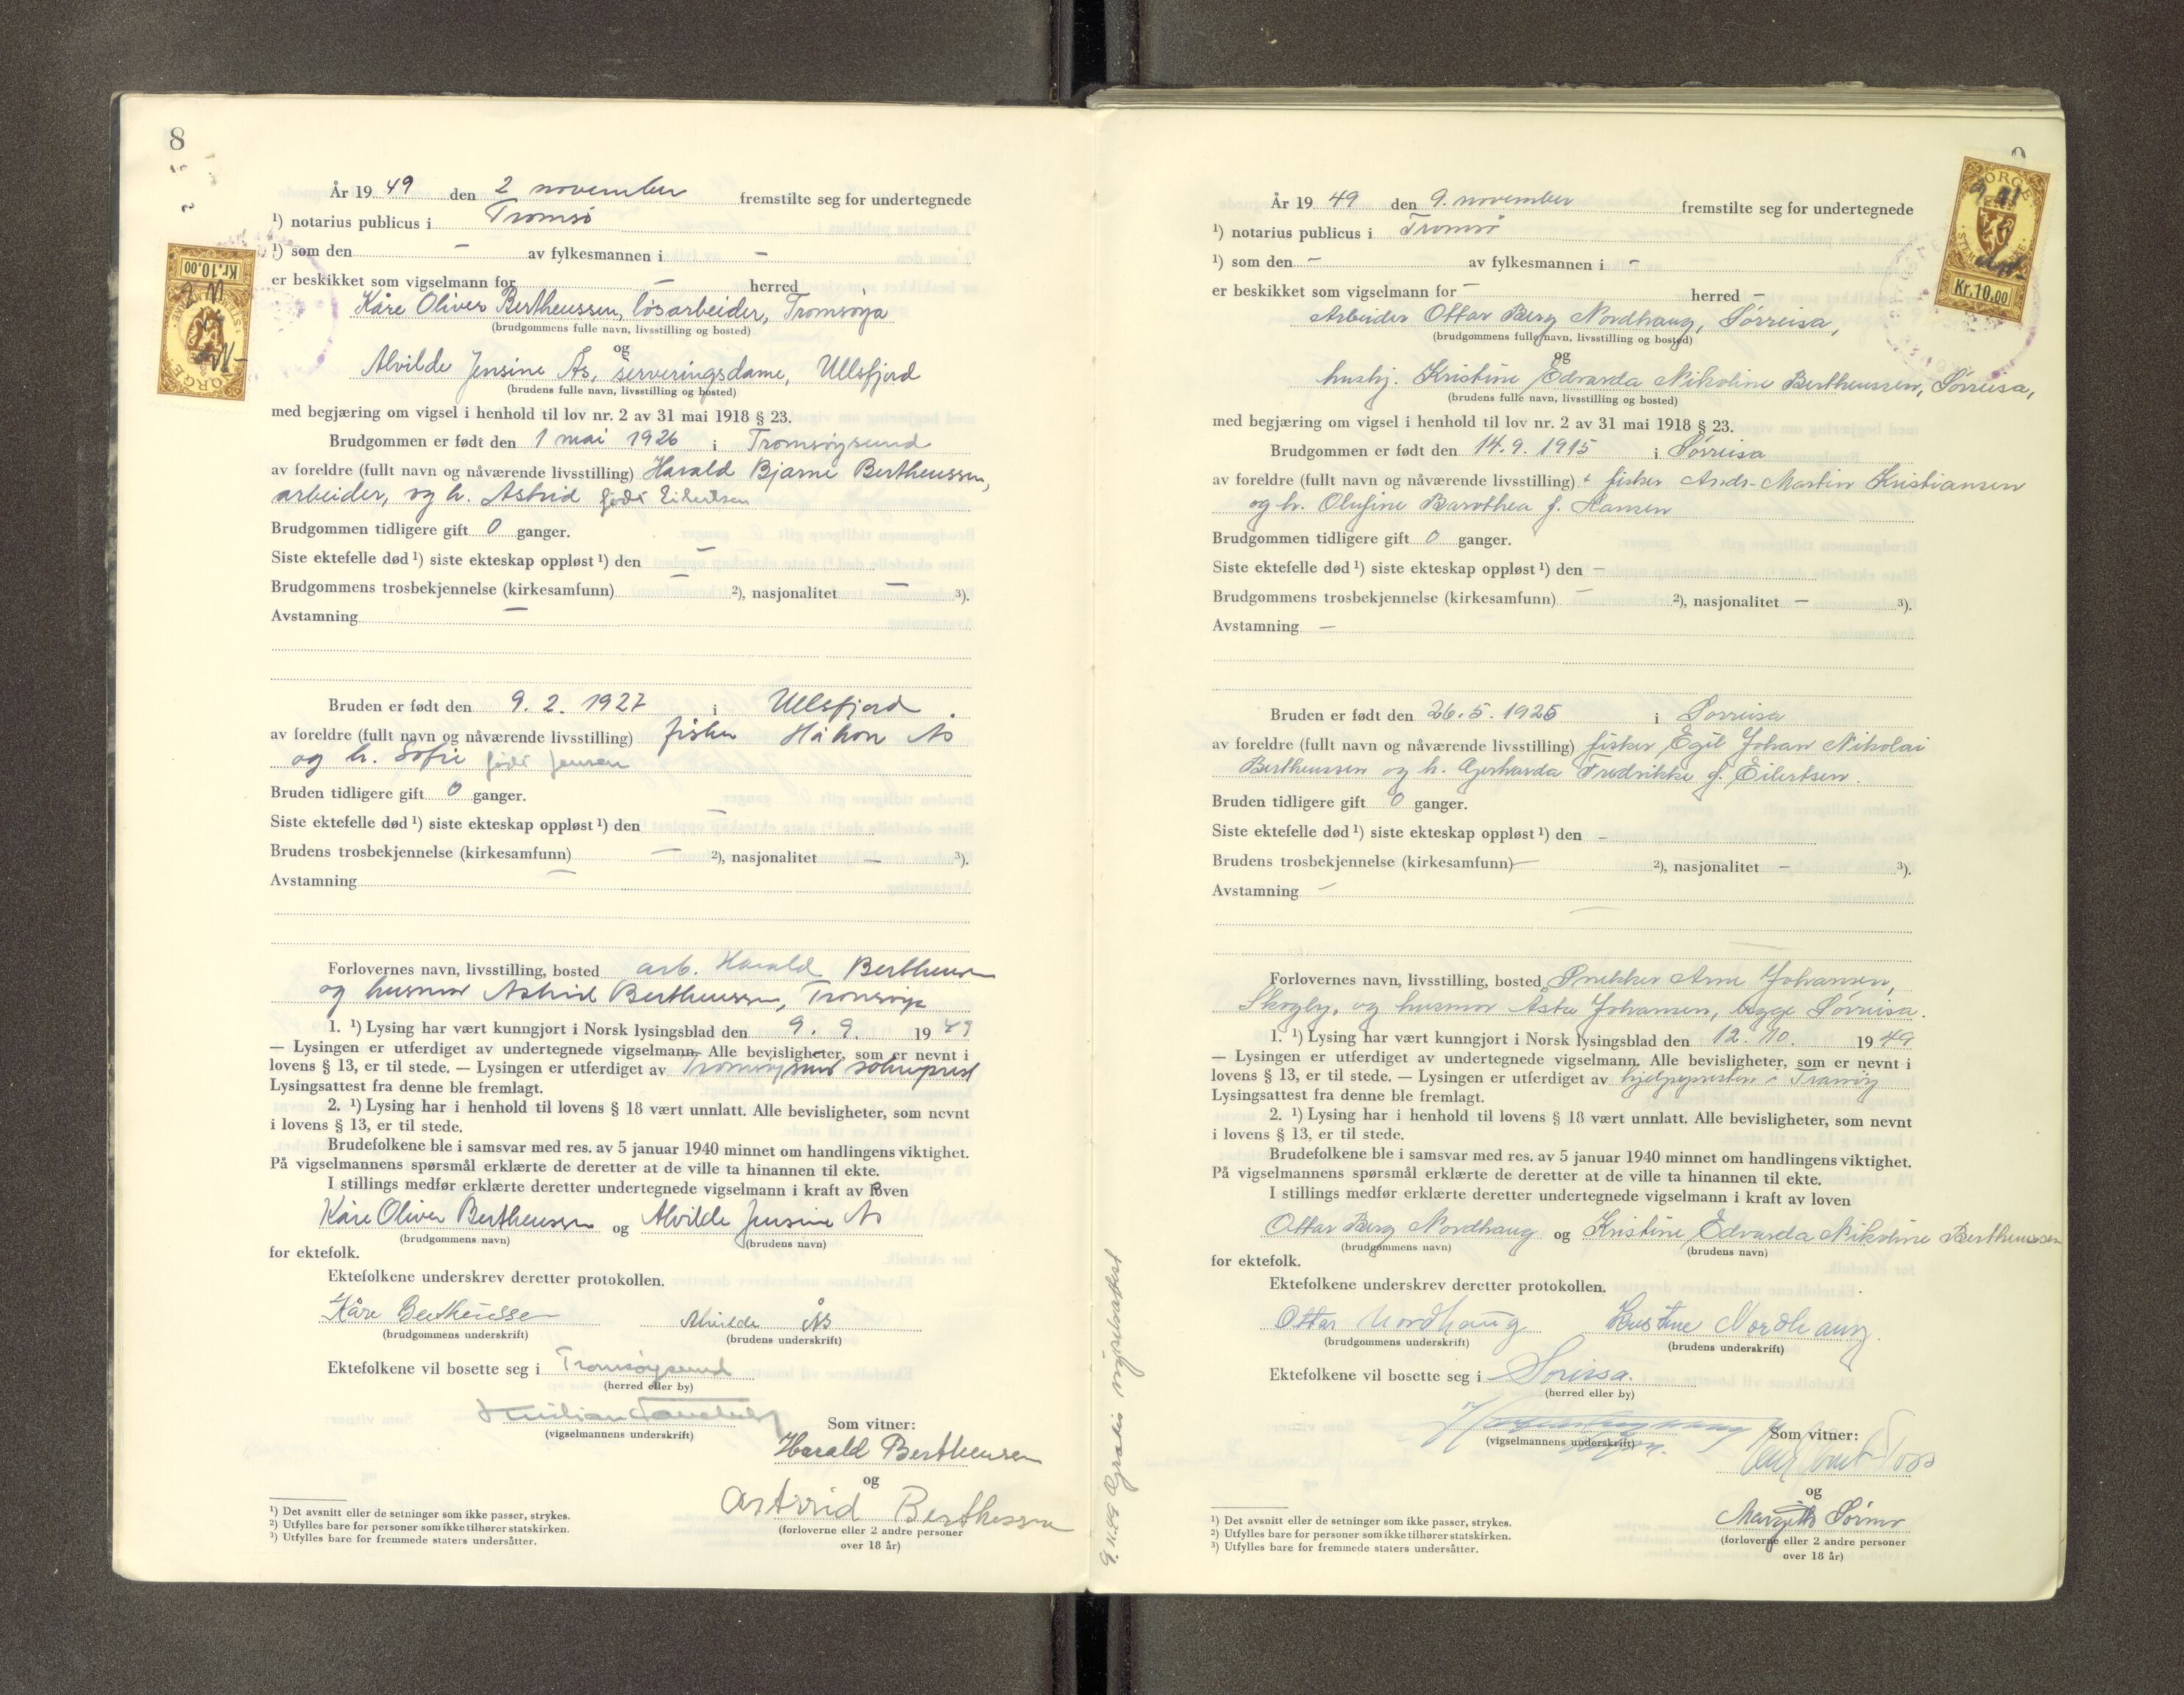 8
År 19 49 den 2 november fremstilte seg for undertegnede
¹) notarius publicus i Tromsø
¹) som den – av fylkesmannen i –
er beskikket som vigselmann for – herred
Kåre Oliver Bertheussen, løsarbeider, Tromsøya
(brudgommens fulle navn, livsstilling og bosted)
og
Alvilde Jensine Ås, serveringsdame, Ullsfjord
(brudens fulle navn, livsstilling og bosted)
med begjæring om vigsel i henhold til lov nr. 2 av 31 mai 1918 § 23.
Brudgommen er født den 1 mai 1926 i Tromsøysund
av foreldre (fullt navn og nåværende livsstilling) Harald Bjarne Bertheussen,
arbeider, og h. Astrid født Eilertsen
Brudgommen tidligere gift 0 ganger.
Siste ektefelle død ¹) siste ekteskap oppløst ¹) den –
Brudgommens trosbekjennelse (kirkesamfunn) – ²), nasjonalitet – ³).
Avstamning –
Bruden er født den 9. 2. 1927 i Ullsfjord.
av foreldre (fullt navn og nåværende livsstilling) fisker Håkon Ås
og h. Sofie født Jensen
Bruden tidligere gift 0 ganger.
Siste ektefelle død ¹) siste ekteskap oppløst ¹) den –
Brudens trosbekjennelse (kirkesamfunn) – ²), nasjonalitet – ³).
Avstamning –
Forlovernes navn, livsstilling, bosted arb. Harald Bertheussen
og husmor Astrid Bertheussen, Tromsøya
1. ¹) Lysing har vært kunngjort i Norsk lysingsblad den 9. 9. 19 49
— Lysingen er utferdiget av undertegnede vigselmann. Alle bevisligheter, som er nevnt i
lovens § 13, er til stede. — Lysingen er utferdiget av Tromsøysund sokneprest
Lysingsattest fra denne ble fremlagt.
2. ¹) Lysing har i henhold til lovens § 18 vært unnlatt. Alle bevisligheter, som nevnt
i lovens § 13, er til stede.
Brudefolkene ble i samsvar med res. av 5 januar 1940 minnet om handlingens viktighet.
På vigselmannens spørsmål erklærte de deretter at de ville ta hinannen til ekte.
I stillings medfør erklærte deretter undertegnede vigselmann i kraft av loven
Kåre Oliver Bertheussen og Alvilde Jensine Ås
(brudgommens navn) (brudens navn)
for ektefolk.
Ektefolkene underskrev deretter protokollen.
Kåre Bertheussen Alvilde Ås
(brudgommens underskrift) (brudens underskrift)
Ektefolkene vil bosette seg i Tromsøysund
(herred eller by)
(vigselmannens underskrift)
Som vitner:
Harald Bertheussen
og
Astrid Bertheussen
(forloverne eller 2 andre personer
over 18 år)
¹) Det avsnitt eller de setninger som ikke passer, strykes.
²) Utfylles bare for personer som ikke tilhører statskirken.
³) Utfylles bare for fremmede staters undersåtter.
Kr. 10.00
NORGE
År 19 49 den 9. november fremstilte seg for undertegnede
¹) notarius publicus i Tromsø
¹) som den – av fylkesmannen i –
er beskikket som vigselmann for – herred –
Arbeider Ottar Berg Nordhaug, Sørreisa,
(brudgommens fulle navn, livsstilling og bosted)
og
hushj. Kristine Edvarda Nikoline Bertheussen, Sørreisa,
(brudens fulle navn, livsstilling og bosted)
med begjæring om vigsel i henhold til lov nr. 2 av 31 mai 1918 § 23.
Brudgommen er født den 14. 9. 1915 i Sørreisa
av foreldre (fullt navn og nåværende livsstilling) + fisker Andr. Martin Kristiansen
og h. Olufine Barothea f. Hansen
Brudgommen tidligere gift 0 ganger.
Siste ektefelle død ¹) siste ekteskap oppløst ¹) den –
Brudgommens trosbekjennelse (kirkesamfunn) – ²), nasjonalitet – ³).
Avstamning –
Bruden er født den 26. 5. 1925 i Sørreisa
av foreldre (fullt navn og nåværende livsstilling) fisker Egil Johan Nikolai
Bertheussen og h. Gerharda Fredrikke f. Eilertsen.
Bruden tidligere gift 0 ganger.
Siste ektefelle død ¹) siste ekteskap oppløst ¹) den –
Brudens trosbekjennelse (kirkesamfunn) – ²), nasjonalitet – ³).
Avstamning –
Forlovernes navn, livsstilling, bosted Snekker Arne Johansen,
Skogly, og husmor Asta Johansen, begge Sørreisa.
1. ¹) Lysing har vært kunngjort i Norsk lysingsblad den 12. 10. 19 49
— Lysingen er utferdiget av undertegnede vigselmann. Alle bevisligheter, som er nevnt i
lovens § 13, er til stede. — Lysingen er utferdiget av hjelpepresten i Tranøy
Lysingsattest fra denne ble fremlagt.
2. ¹) Lysing har i henhold til lovens § 18 vært unnlatt. Alle bevisligheter, som nevnt
i lovens § 13, er til stede.
Brudefolkene ble i samsvar med res. av 5 januar 1940 minnet om handlingens viktighet.
På vigselmannens spørsmål erklærte de deretter at de ville ta hinannen til ekte.
I stillings medfør erklærte deretter undertegnede vigselmann i kraft av loven
Ottar Berg Nordhaug og Kristine Edvarda Nikoline Bertheussen
(brudgommens navn) (brudens navn)
for ektefolk.
Ektefolkene underskrev deretter protokollen.
Ottar Nordhaug Kristine Nordhaug.
(brudgommens underskrift) (brudens underskrift)
Ektefolkene vil bosette seg i Soreisa.
(herred eller by)
(vigselmannens underskrift)
Som vitner:
og
(forloverne eller 2 andre personer
over 18 år)
¹) Det avsnitt eller de setninger som ikke passer, strykes.
²) Utfylles bare for personer som ikke tilhører statskirken.
³) Utfylles bare for fremmede staters undersåtter.
9.11.49 Gratis vigselsattest
NORGE
Kr. 10.00